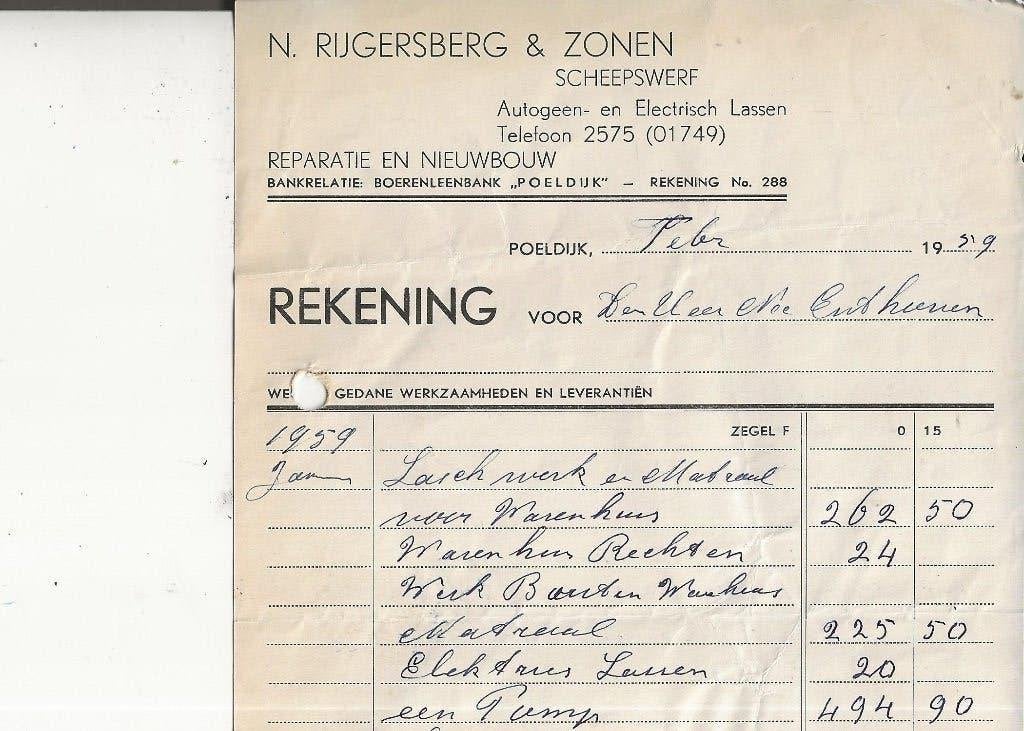 N. RIJGERSBERG & ZONEN
SCHEEPSWERF
Autogeen- en Electrisch Lassen
Telefoon 2575 (01749)
REPARATIE EN NIEUWBOUW
BANKRELATIE: BOERENLEENBANK „POELDIJK” — REKENING No. 288
POELDIJK, Febr 1959
REKENING VOOR Den Heer
WE GEDANE WERKZAAMHEDEN EN LEVERANTIËN
1959 ZEGEL F 0 15
Jan Lasch werk en Matraal
voor Warenhuis 262 50
Warenhuis Rechten 24
Werk Bouten Warenhuis
Matraal 225 50
Elektries Lassen 20
een Pomp 494 90